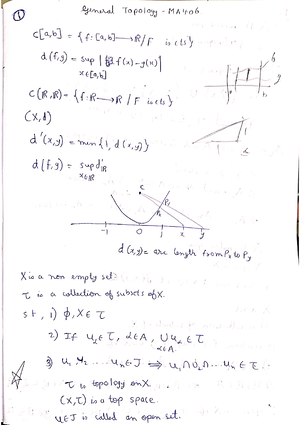 ① General Topology - MA406
C[a,b] = {f:[a,b] → ℝ / f is cts}
d(f,g) = sup |f(x) - g(x)|
x∈[a,b]
C(ℝ,ℝ) = {f:ℝ → ℝ / f is cts}
(X,d)
d'(x,y) = min{1, d(x,y)}
d(f,g) = sup d'
x∈ℝ
-1 0 1 x y
d(x,y) = arc length from Px to Py
X is a non empty set
τ is a collection of subsets of X.
s.t, 1) φ, X ∈ τ
2) If uα ∈ τ, α∈A, ∪uα ∈ τ
α∈A
3) u1, u2 ... un ∈ J ⟹ u1 ∩ u2 ∩ ... un ∈ τ
τ is topology on X.
(X,τ) is a top space.
u∈J is called an open set.